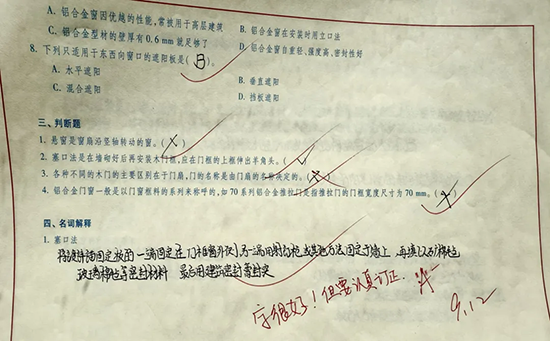 A. 铝合金窗因优越的性能，常被用于高层建筑 B. 铝合金窗在安装时用立口法
C. 铝合金型材的壁厚有 0.6 mm 就足够了 D. 铝合金窗自重轻、强度高、密封性好
8. 下列只适用于东西向窗口的遮阳板是( B )。
A. 水平遮阳 B. 垂直遮阳
C. 混合遮阳 D. 挡板遮阳
三、判断题
1. 悬窗是窗扇沿竖轴转动的窗。( × )
2. 塞口法是在墙砌好后再安装木门框,应在门框的上框伸出羊角头。( √
3. 各种不同的木门的主要区别在于门扇,门的名称是由门扇的名称决定的。( × )
4. 铝合金门窗一般是以门窗框料的系列来称呼的,如 70 系列铝合金推拉门是指推拉门的门框宽度尺寸为 70 mm。( × )
四、名词解释
1. 塞口法
一端固定在门框窗外侧 另一端用射钉枪 或其他方法 固定于墙上 再填以矿棉毡
玻璃棉毡等密封材料 最后用建筑密封膏封实
字很好！但要认真订正.
9.12